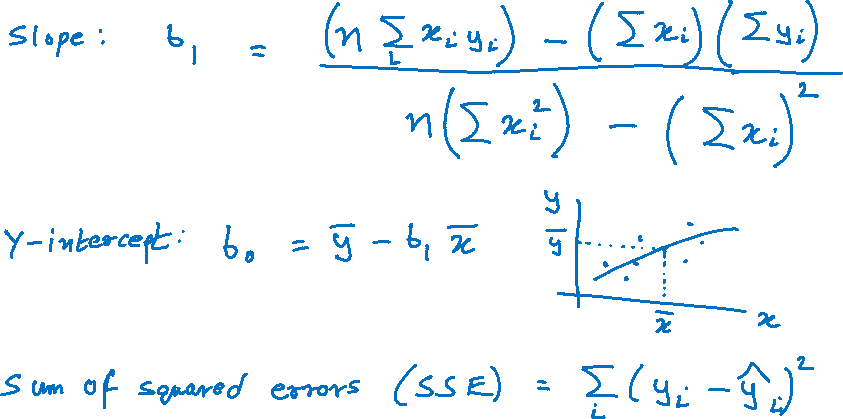 Slope: b₁ = (n Σᵢ xᵢ yᵢ) − (Σ xᵢ)(Σ yᵢ)
n(Σ xᵢ²) − (Σ xᵢ)²
Y-intercept: b₀ = y̅ − b₁ x̅
y
y̅
x̅
x
Sum of squared errors (SSE) = Σᵢ (yᵢ − ŷᵢ)²